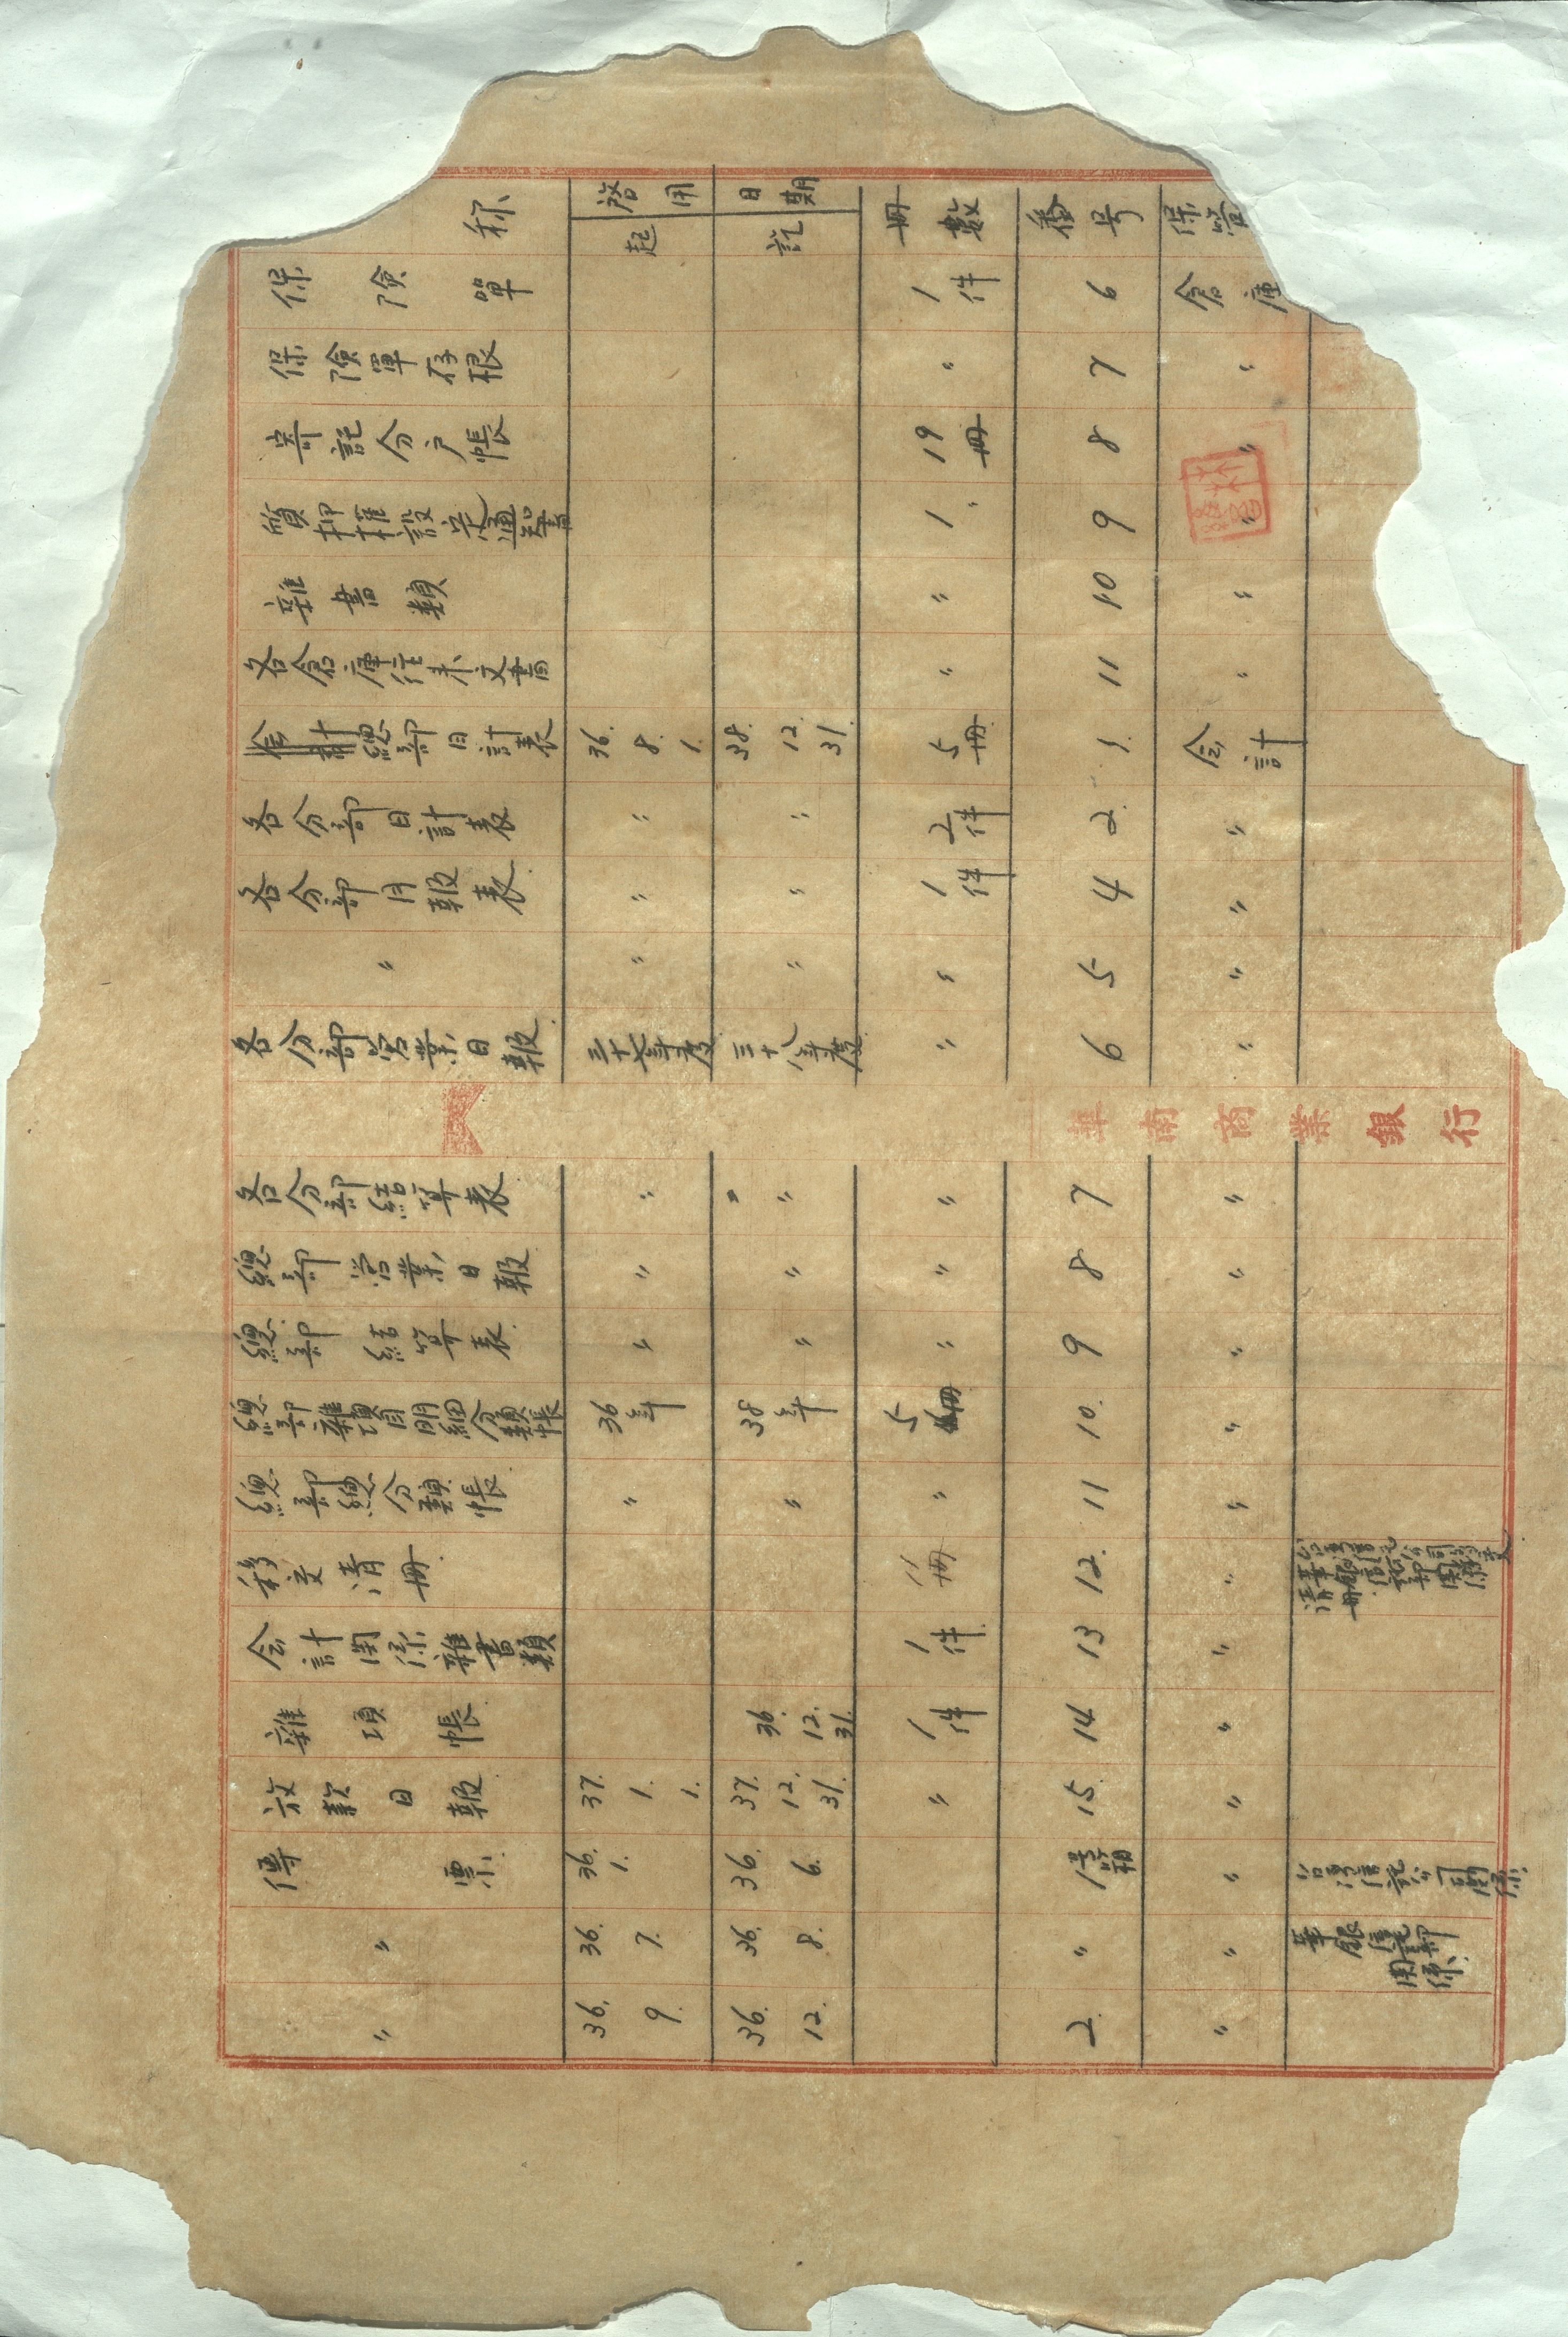 称 啓用日期 起 訖 冊數 番号 保管
保險單 1件 6 倉庫
保險單存根 〃 7 〃
寄託分户帳 19冊 8 〃
質押權設定通知書 1〃 9 〃
雜書類 〃 10 〃
各倉庫往来文書 〃 11 〃
總部日計表 36.8.1. 38.12.31. 5冊 1. 会計
各分部日計表 〃 〃 2件 2. 〃
各分部月報表 〃 〃 1件 4 〃
〃 〃 〃 〃 5 〃
各分部営業日報 三十七年度 三十八年度 〃 6 〃
華南商業銀行
各分部結算表 〃 〃 〃 7 〃
總部営業日報 〃 〃 〃 8 〃
總部結算表 〃 〃 〃 9 〃
總部雜項目明細分類帳 36年 38年 5冊 10. 〃
總部總分類帳 〃 〃 〃 11 〃
移交清冊 1冊 12. 〃 台湾信託公司移交
清冊
会計関係雜書類 1件 13 〃
雜項帳 36.12.31. 1件 14 〃
放款日報 37.1.1. 37.12.31. 〃 15. 〃
傳票 36.1. 36.6. 1号箱 〃 台湾信託公司関係
〃 36.7. 36.8. 〃 〃 華銀信託部
関係
〃 36.9. 36.12. 2. 〃